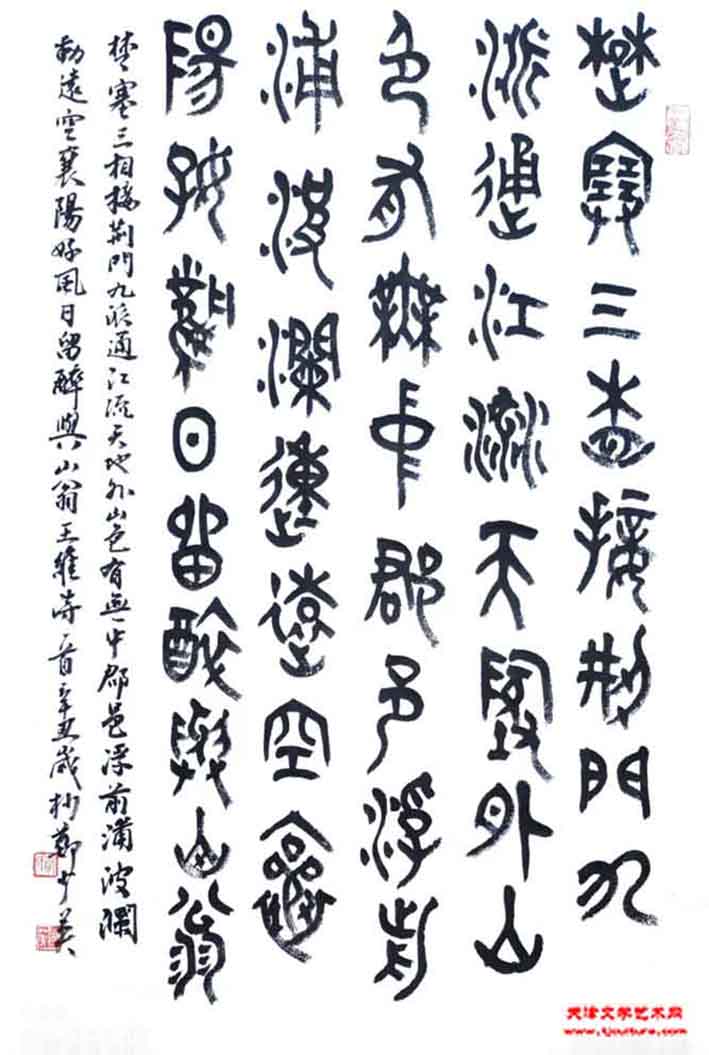 楚塞三相接荊門九
派通江流天地外山
色有無中郡邑浮前
浦波瀾動遠空襄
陽好風日留醉與山翁
楚塞三相接荊門九派通江流天地外山色有無中郡邑浮前浦波瀾
動遠空襄陽好風日留醉與山翁王維詩一首辛丑歲杪鄭少英
天津文学艺术网
www.tjculture.com